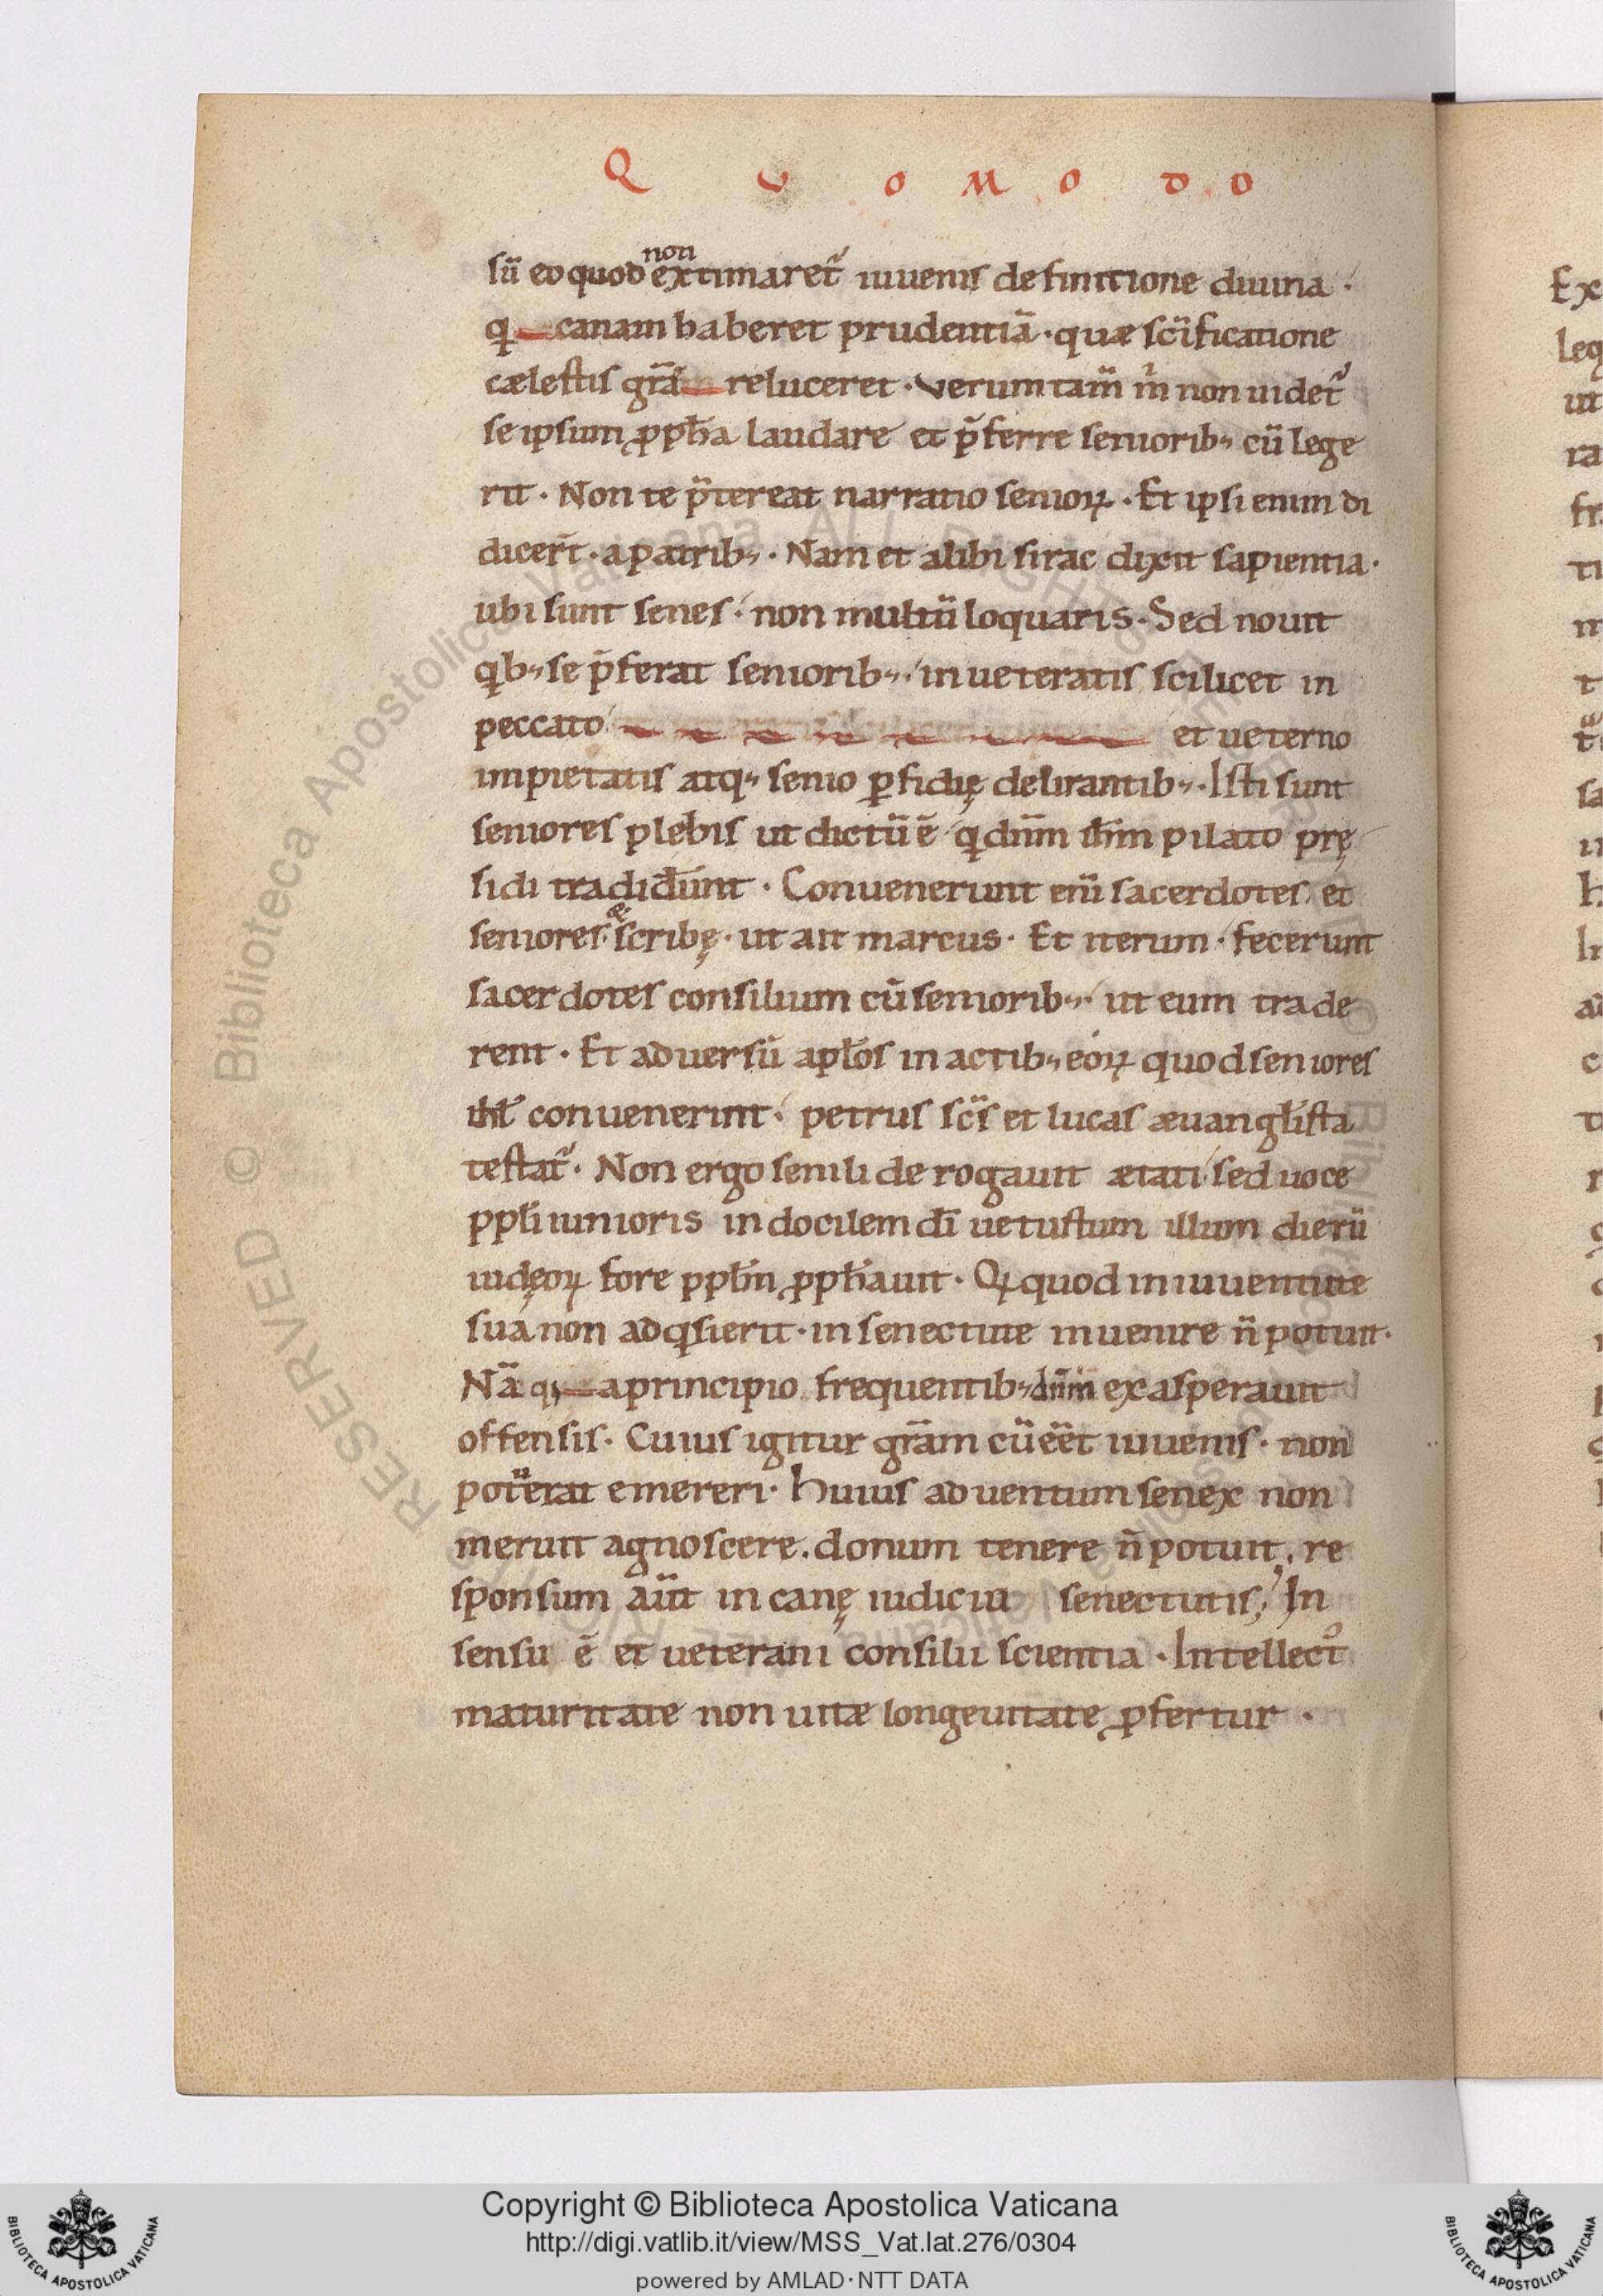 Q U O M O D O
non
sū eo quod extimaret᷑ iuuenis definitione diuina ·
q canam haberet prudentiā · quæ scīficatione
cælestis grā reluceret · Verumtam̄ m̄ non uidet᷑
se ipsum ꝓph̄a laudare et p̄ferre seniorib; cū lege
rit · Non te p̄tereat narratio senioꝝ · Et ipsi enim di
dicer̄t · a patrib; · Nam et alibi sirac dixit sapientia ·
ubi sunt senes · non multū loquaris · Sed nouit
qb; se p̄ferat seniorib; · inueteratis scilicet in
peccato et ueterno
impietatis atq; senio ꝑfidię delirantib; · Isti sunt
seniores plebis ut dictū ē q dn̄m ih̄m pilato prę
sidi tradider̄unt · Conuenerunt enī sacerdotes et
&
seniores · scribę · ut ait marcus · Et iterum · fecerunt
sacerdotes consilium cū seniorib; · ut eum trade
rent · Et aduersū apłos in actib; eoꝝ quod seniores
isrł conuenerint · petrus scs̄ et lucas æuangłista
testat᷑ · Non ergo senili derogauit ætati sed uoce
ppłi iunioris indocilem dī uetustum illum dierū
iudęoꝝ fore ppłm ꝓph̄auit · Qꝛ quod in iuuentute
sua non adqsierit · in senectute inuenire n̄ potuit ·
Nā q; a principio frequentib; dn̄m exasperauit
offensis · Cuius igitur grām cū eēt iuuenis · non
pot̄uerat emereri · huius aduentum senex non
meruit agnoscere . donum tenere n̄ potuit , re
sponsum aūt in canę iudiciu senectutis ; In
sensu ē et ueterani consilii scientia · Intellect᷒
maturitate non uitæ longeuitate ꝓfertur ·
Ex
leq
ut
ra
fr
ti
sa
RESERVED © Biblioteca Apostolica Vaticana ALL RIGHTS RESERVED
Copyright © Biblioteca Apostolica Vaticana
http://digi.vatlib.it/view/MSS_Vat.lat.276/0304
powered by AMLAD·NTT DATA
BIBLIOTECA APOSTOLICA VATICANA
BIBLIOTECA APOSTOLICA VATICANA